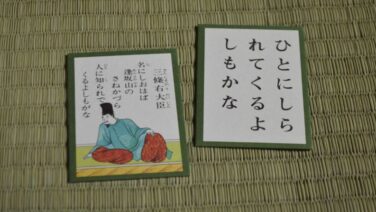 三條右大臣
名にしおはば
逢坂山の
さねかづら
人に知られで
くるよしもがな
ひとにしら
れてくるよ
しもかな